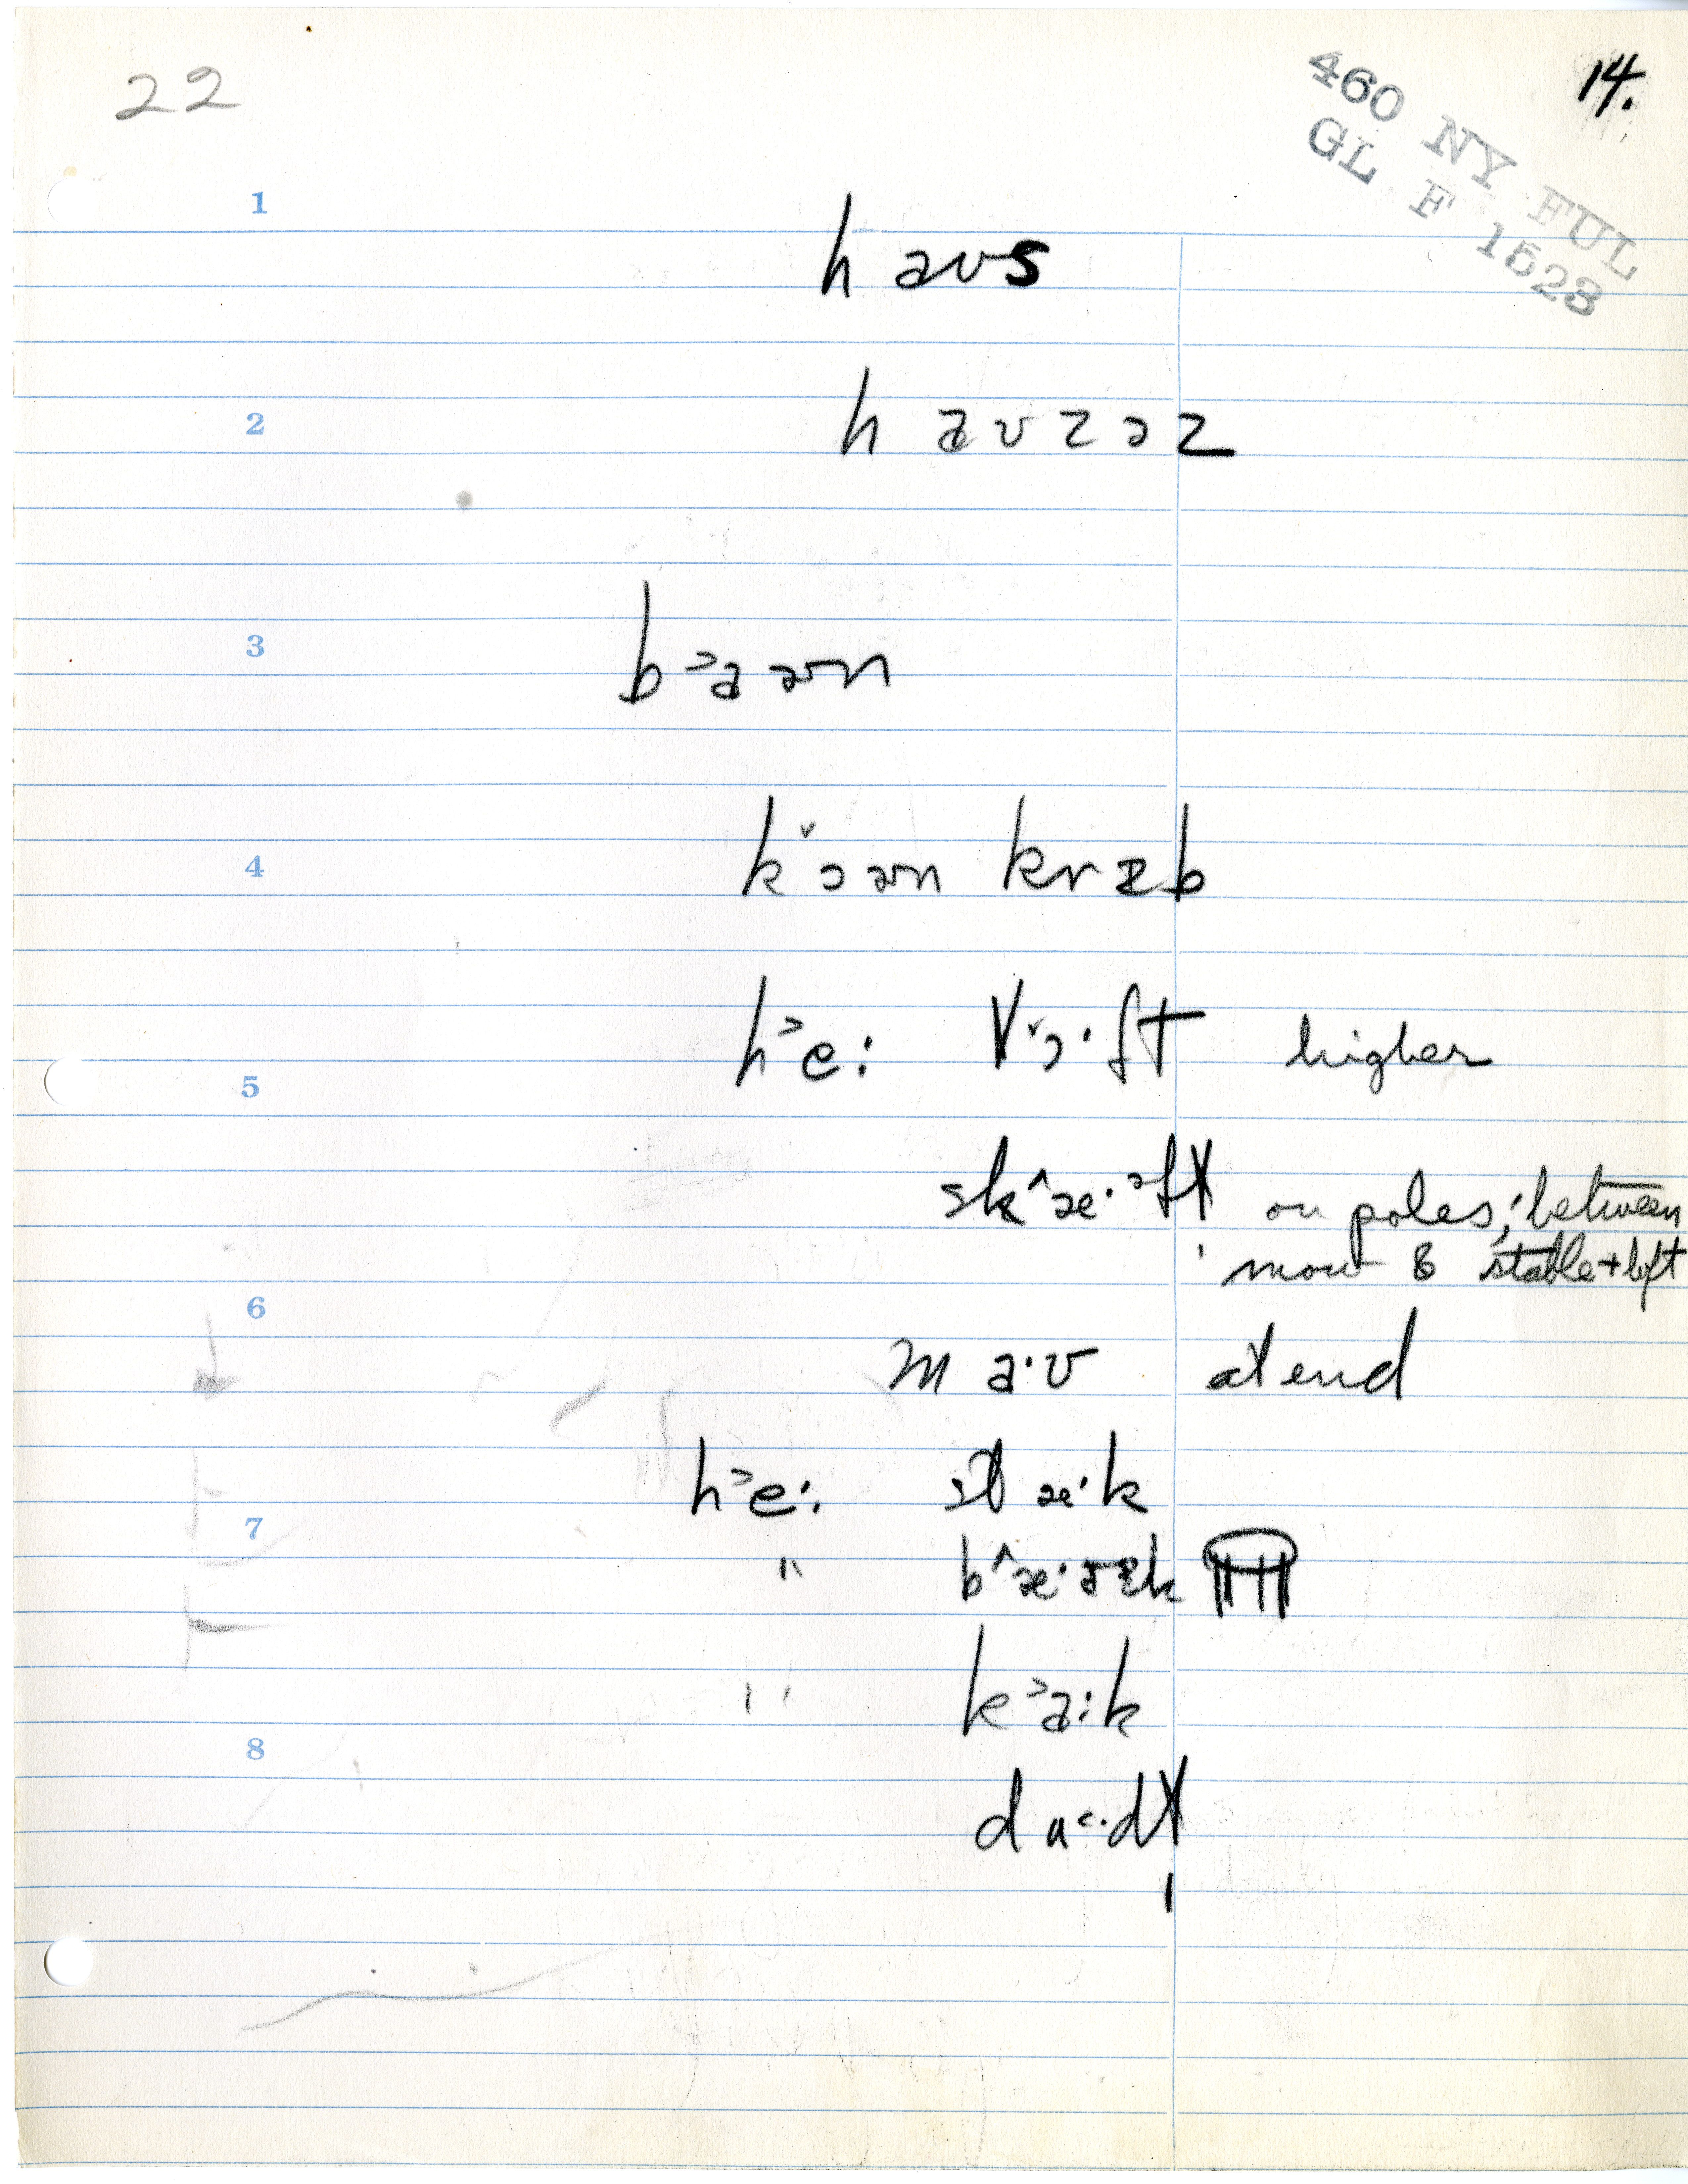 22
14.
460 NY FUL
GL F 1528
1
haʊs
2
haʊzəz
3
b˃aən
4
k˅ɔən krɪb
h˃e: l˅ɔ·ft higher
5
sk˄æ·əft on poles; between
mow & stable + loft
6
maʊ at end
h˃e: stæ·k
7
" b˄æ·k
" k˃a:k
8
dʌ˂·dt